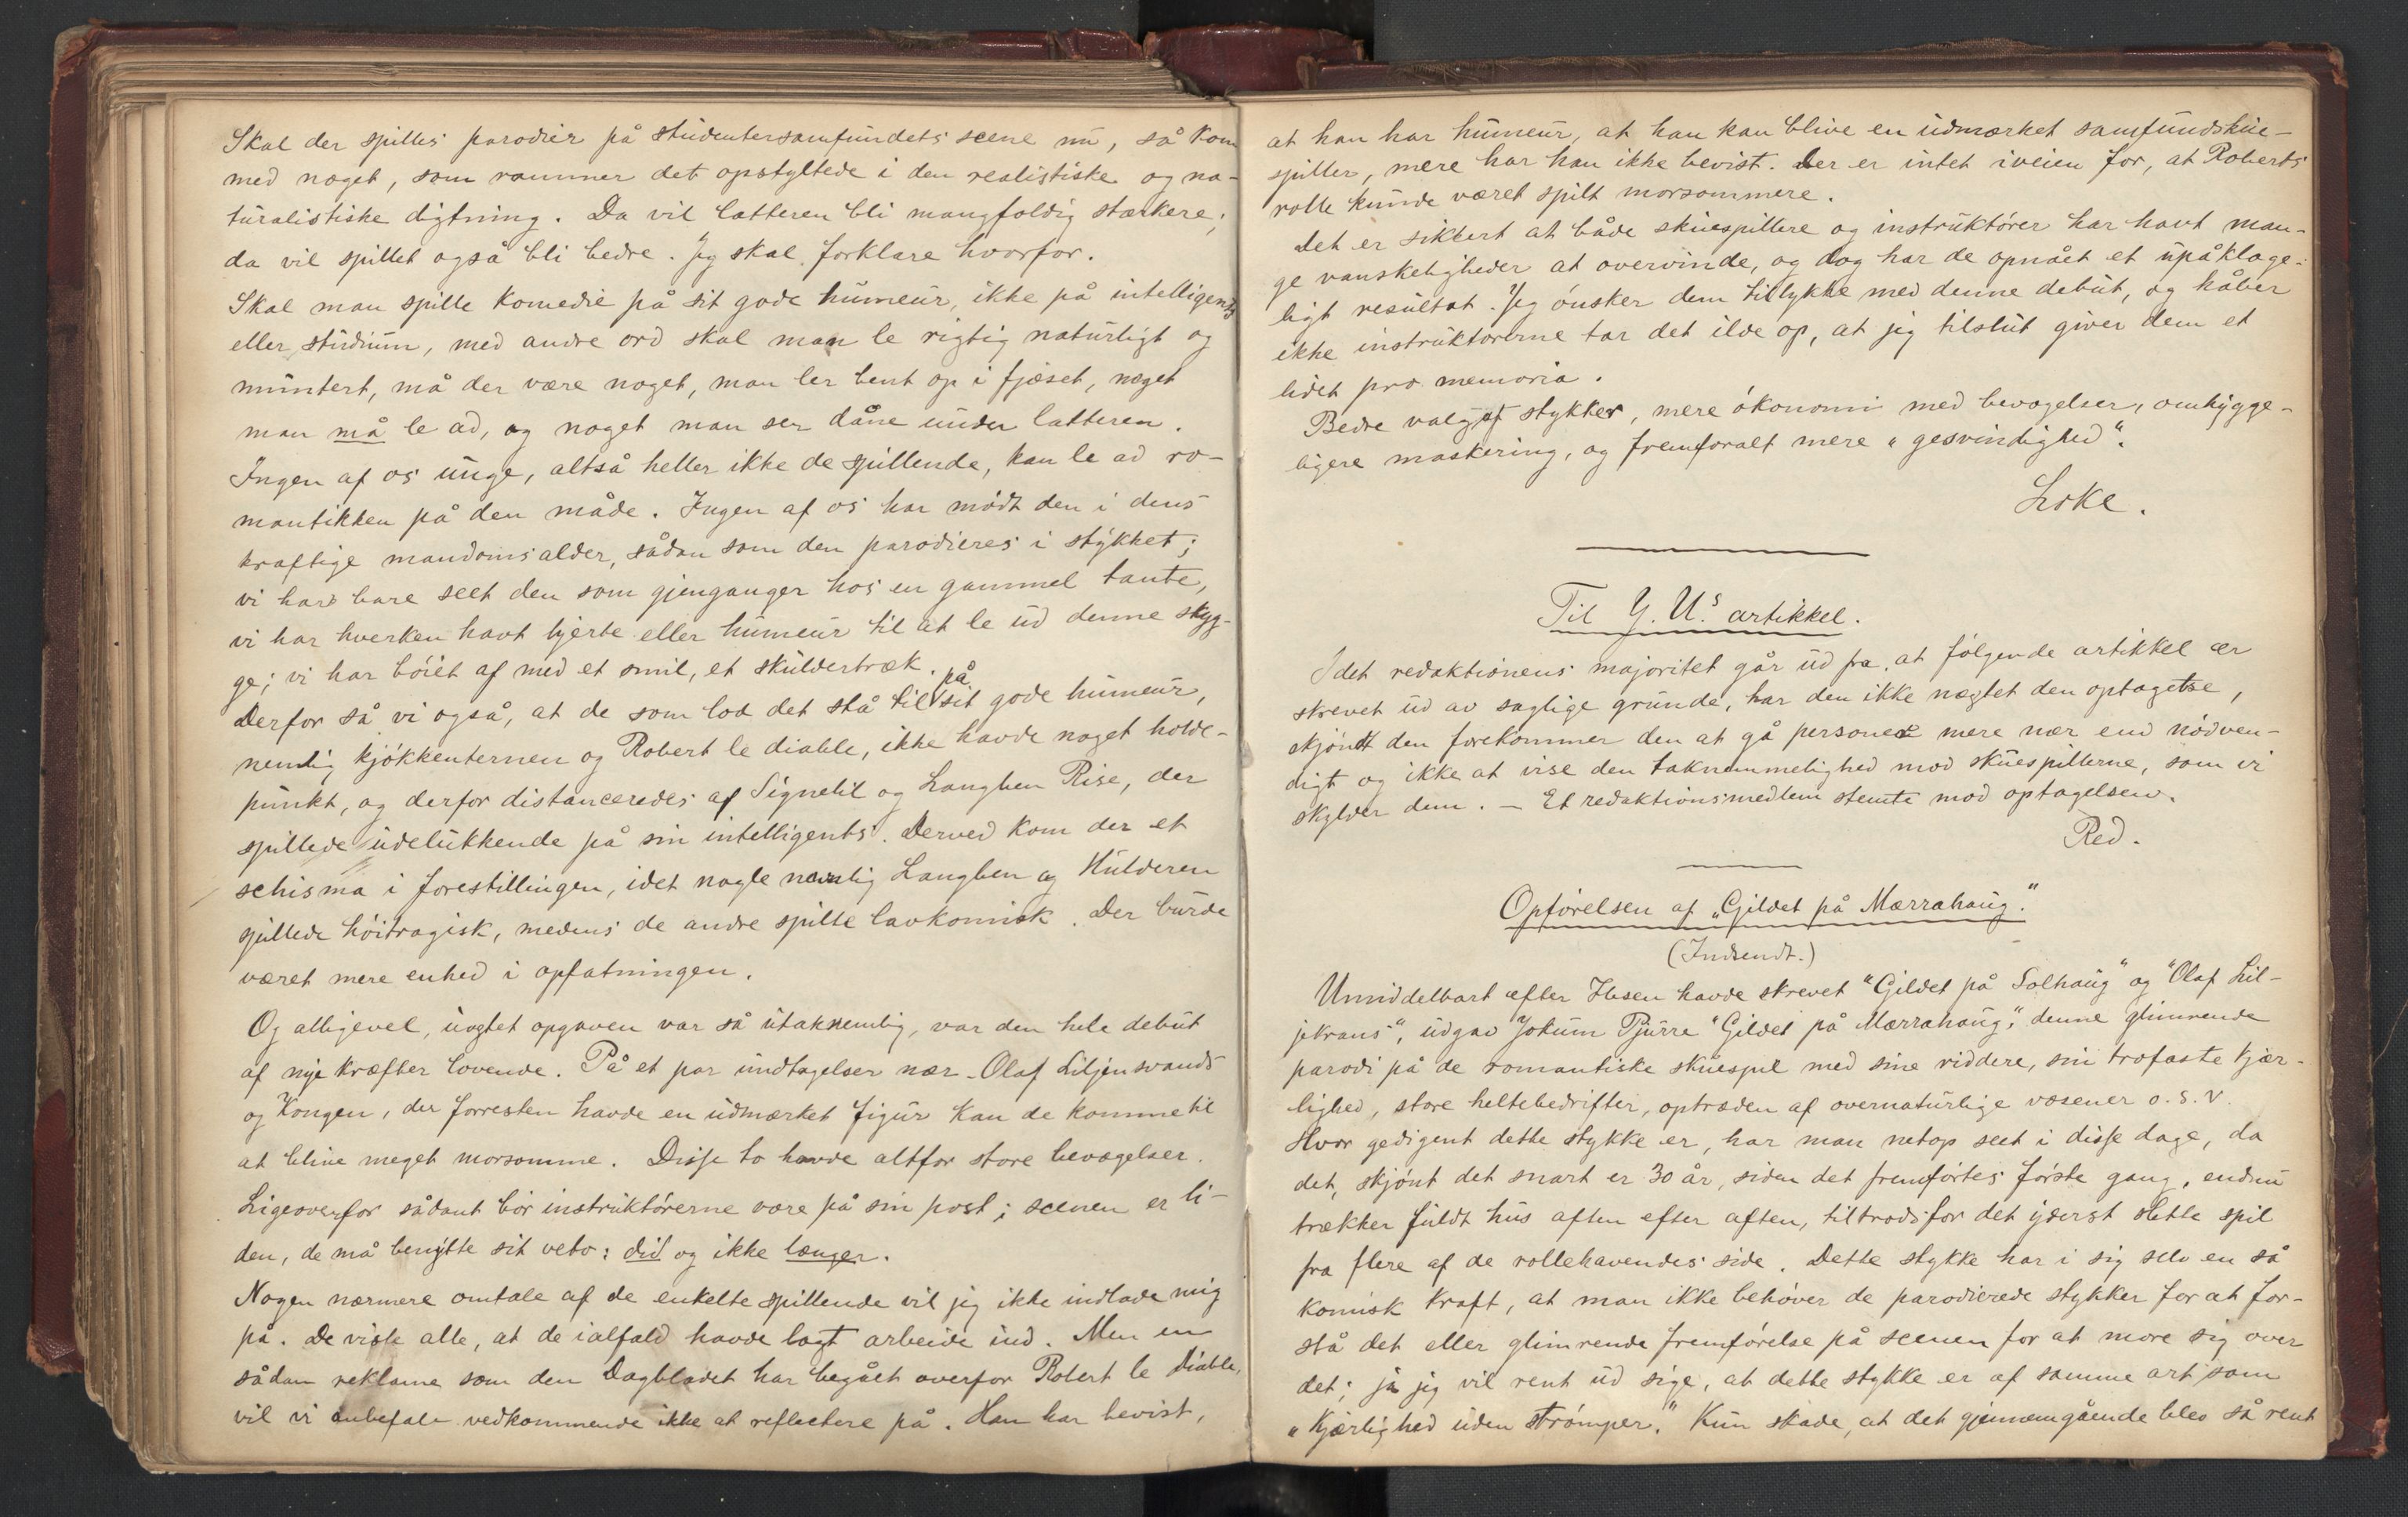 Skal der spilles parodier på studentersamfundets scene nu, så kom
med noget, som rammer det opstyltede i den realistiske og na-
turalistiske digtning. Da vil latteren bli mangfoldig stærkere,
da vil spillet også bli bedre. Jeg skal forklare hvorfor.
Skal man spille komedie på sit gode humeur, ikke på intelligents
eller studium, med andre ord skal man le rigtig naturligt og
muntert, må der være noget, man ler bent op i fjæset, noget
man må le ad, og noget man ser dåne under latteren.
Ingen af os unge, altså heller ikke de spillende, kan le ad ro-
mantikken på den måde. Ingen af os har mødt den i dens
kraftige mandomsalder, sådan som den parodieres i stykket;
vi har bare seet den som gjenganger hos en gammel tante,
vi har hverken havt hjerte eller humeur til at le ud denne skyg-
ge; vi har bøiet af med et smil, et skuldertræk.
Derfor så vi også, at de som lod det stå til på sit gode humeur,
nemlig kjøkkenternen og Robert le diable, ikke havde noget holde-
punkt, og derfor distanceredes af Signelil og Langben Rise, der
spillede udelukkende på sin intelligents. Derved kom der et
schisma i forestillingen, idet nogle navnlig Langben og Hulderen
spillede høitragisk, medens de andre spilte lavkomisk. Der burde
været mere enhed i opfatningen.
Og alligevel, uagtet opgaven var så utaknemlig, var den hele debut
af nye kræfter lovende. På et par undtagelser nær - Olaf Liljensvands
og Kongen, der forresten havde en udmærket figur kan de komme til
at blive meget morsomme. Disse to havde altfor store bevægelser.
Ligeoverfor sådant bør instruktørerne være på sin post; scenen er li-
den, de må benytte sit veto: did og ikke længer.
Nogen nærmere omtale af de enkelte spillende vil jeg ikke indlade mig
på. De viste alle, at de ialfald havde lagt arbeide ind. Men en
sådan reklame som den Dagbladet har begået overfor Robert le diable,
vil vi anbefale vedkommende ikke at reflectere på. Han har bevist,
at han har humeur, at han kan blive en udmærket samfundskue-
spiller, mere har han ikke bevist. Der er intet iveien for, at Roberts
rolle kunde været spilt morsommere.
Det er sikkert at både skuespillere og instruktører har havt man-
ge vanskeligheder at overvinde, og dog har de opnået et upåklage-
ligt resultat. Jeg ønsker dem tillykke med denne debut, og håber
ikke instruktørerne tar det ilde op, at jeg tilslut giver dem et
lidet pro memoria.
Bedre valg af stykker, mere økonomi med bevægelser, omhygge-
ligere maskering, og fremforalt mere "gesvindighed".
Loke.
Til Y. U.s artikkel.
Idet redaktionens majoritet går ud fra, at følgende artikkel er
skrevet ud av saglige grunde, har den ikke nægtet den optagelse,
skjøndt den forekommer den at gå personer mere nær end nødven-
digt og ikke at vise den taknemmelighed mod skuespillerne, som vi
skylder dem. - Et redaktionsmedlem stemte mod optagelsen.
Red.
Opførelsen af "Gildet på Mærrahaug."
(Indsendt.)
Umiddelbart efter Ibsen havde skrevet "Gildet på Solhaug" og "Olaf Lil-
jekrans", udgav Jokum Pjurre "Gildet på Mærrahaug," denne glimrende
parodi på de romantiske skuespil med sine riddere, sin trofaste kjær-
lighed, store heltebedrifter, optræden af overnaturlige væsener o. s. v.
Hvor gedigent dette stykke er, har man netop seet i disse dage, da
det, skjønt det snart er 30 år, siden det fremførtes første gang, endnu
trækker fuldt hus aften efter aften, tiltrods for det yderst slette spil
fra flere af de rollehavendes side. Dette stykke har i sig selv en så
komisk kraft, at man ikke behøver de parodierede stykker for at for-
stå det eller glimrende fremførelse på scenen for at more sig over
det; ja jeg vil rent ud sige, at dette stykke er af samme art som
"Kjærlighed uden strømper." Kun skade, at det gjennemgående blev så rent